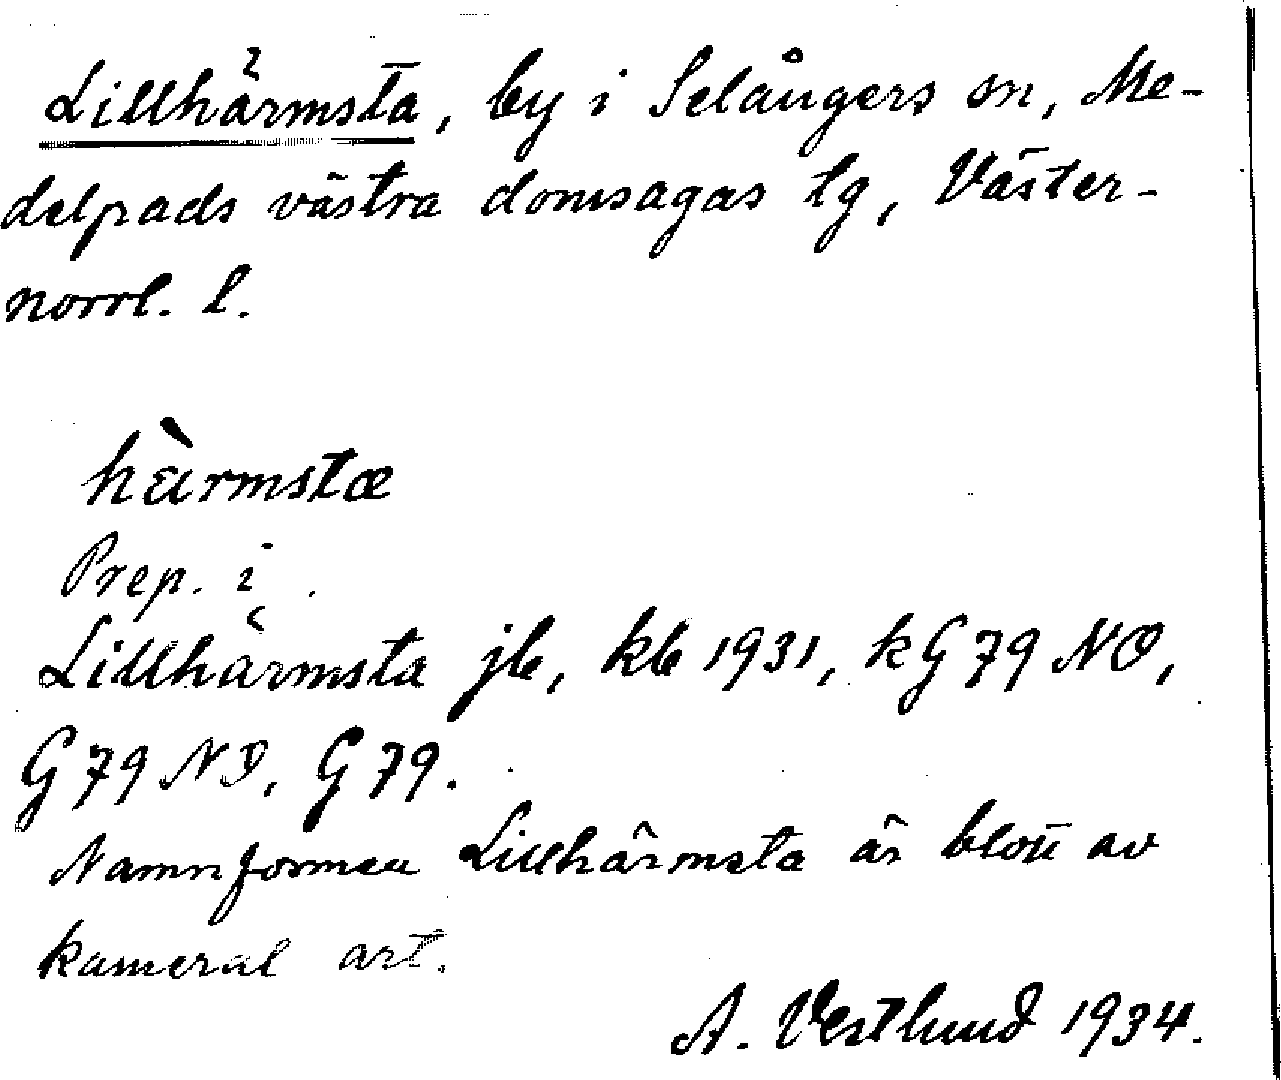 Lillhärmsta, by i Selångers sn, Me-
delpads västra domsagas tg, Väster-
norrl. l.
hæ̀rmstæ
Prep. i.
Lillhärmsta jb, kb 1931, kG79 NO,
G79 NO, G79.
Namnformen Lillhärmsta är blott av
kameral art.
A. Vestlund 1934.